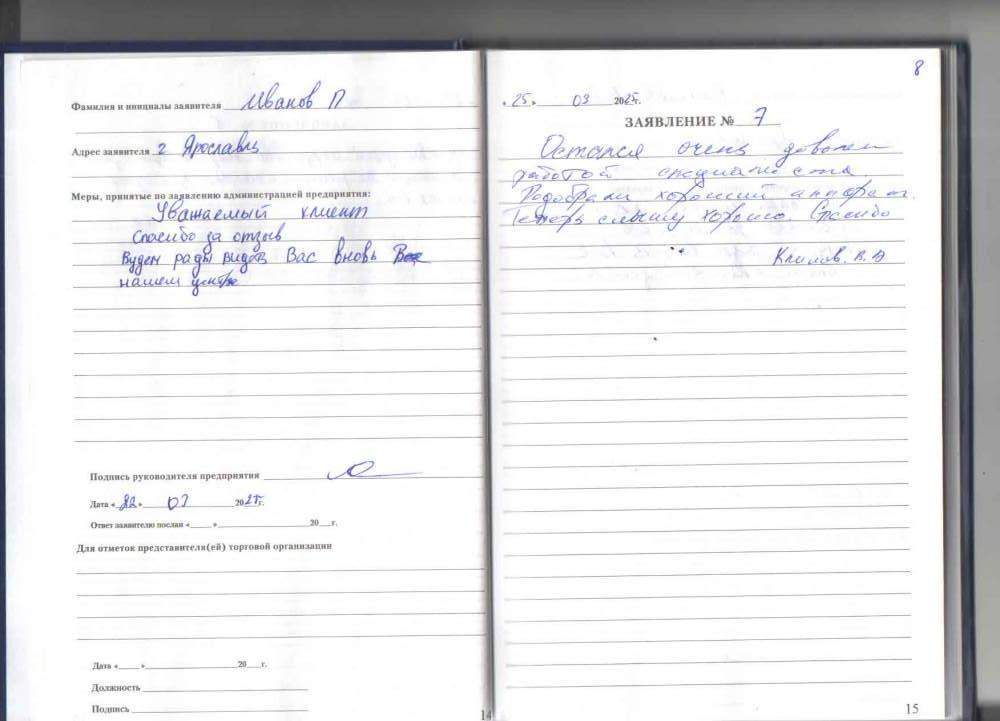 Фамилия и инициалы заявителя Иванов П
Адрес заявителя г Ярославль
Меры, принятые по заявлению администрацией предприятия:
Уважаемый клиент
Спасибо за отзыв
Будем рады видеть Вас вновь
нашем центре
Подпись руководителя предприятия
Дата « 22 » 03 2025г.
Ответ заявителю послан «____ »____________20___г.
Для отметок представителя(ей) торговой организации
Дата «____ »____________20___г.
Должность
Подпись
14
8
« 25 » 03 2025г.
ЗАЯВЛЕНИЕ № 7
Остался очень доволен
работой специалиста.
Подобрали хороший аппарат.
Теперь слышу хорошо. Спасибо
Климов. В.А
15